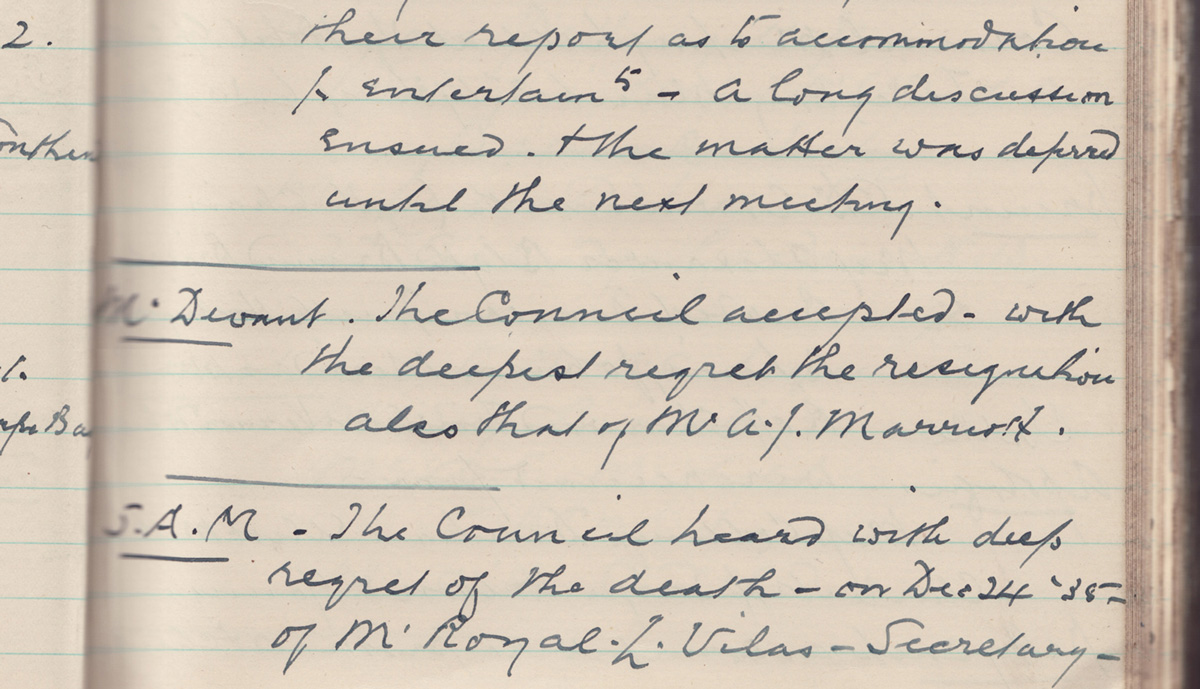 2.
their report as to accommodation
for Entertaints - A long discussion
Ensued. + the matter was deferred
until the next meeting.
Mr Devant. The Council accepted - with
the deepest regret the resignation
also that of Mr A.J. Marriott.
S.A.M - The Council heard with deep
regret of the death - on Dec 24 '35 -
of Mr Royal L. Vilas - Secretary -